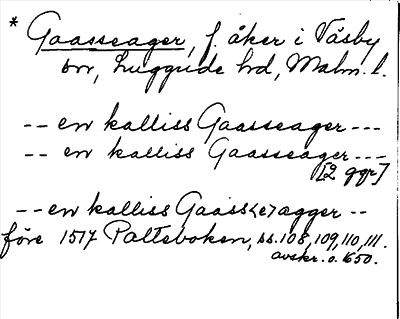 * Gaasseager, f. åker i Väsby
sn, Luggude hd, Malm. l.
-- en kalliss Gaasseager ---
-- en kalliss Gaasseager ---
[2 ggr]
-- en kalliss Gaass<e>agger --
före 1517 Palteboken, ss. 108, 109, 110, 111.
avskr. o. 1650.